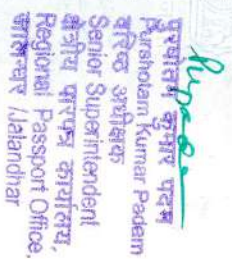 पुरषोत्तम कुमार पदम
Purshotam Kumar Padam
वरिष्ठ अधीक्षक
Senior Superintendent
क्षेत्रीय पारपत्र कार्यालय,
Regional Passport Office,
जालन्धर /Jalandhar